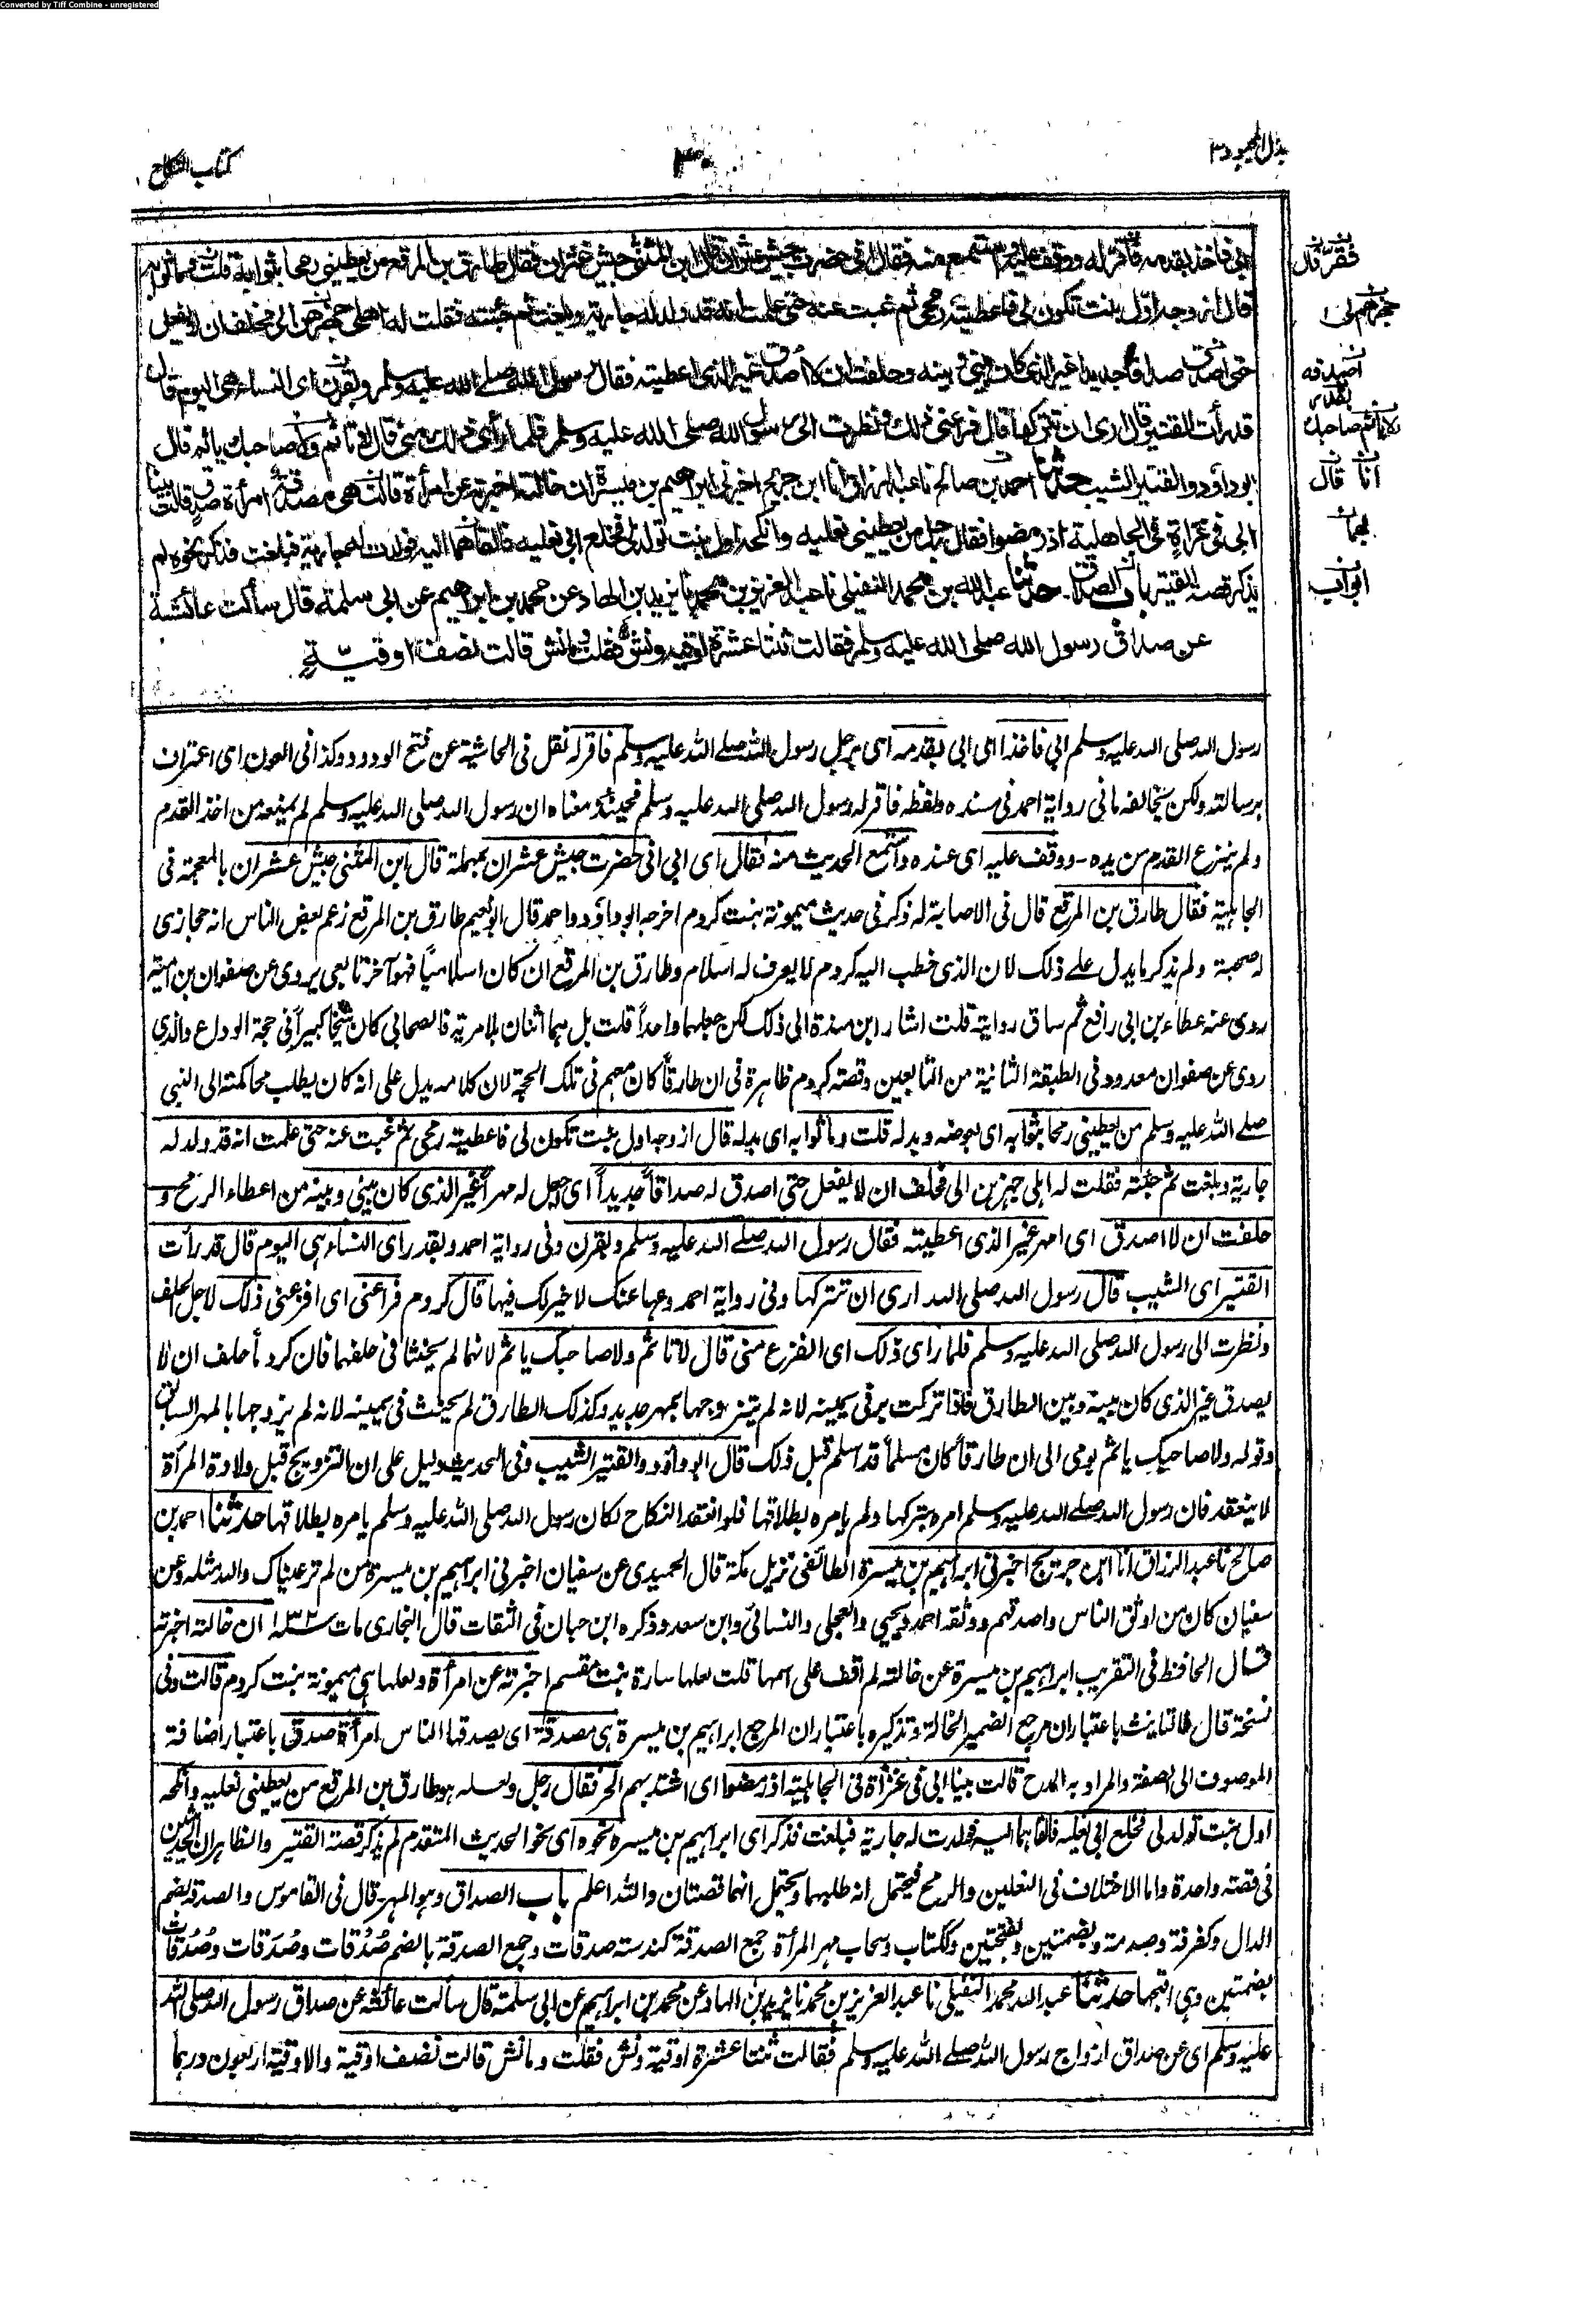 Converted by Tiff Combine - unregistered
بذل المجهود ٣
٣٠
كتاب النكاح
ابى فاخذ بقدمه فأقر له ووقف عليه واستمع منه فقال انى حضرت جيش عثران قال ابن المثنى جيش غثران فقال طارق بن المرقع من يعطينى رمحا بثوابه قلت وما ثوابه
قال ازوجه اول بنت تكون لى فاعطيته رمحى ثم غبت عنه حتى علمت انه قد ولد له جارية وبلغت ثم جئته فقلت له اهلى جهزهن الى فحلف ان لا يفعل
حتى اصدق صداقا جديدا غير الذى كان بينى وبينه وحلفت ان لا اصدق غير الذى اعطيته فقال رسول الله صلى الله عليه وسلم وبقرن اى النساء هى اليوم قال
قد رأت القتير قال ارى ان تتركها قال فراعنى ذلك ونظرت الى رسول الله صلى الله عليه وسلم فلما رأى ذلك منى قال لا تأثم ولا صاحبك يأثم قال
ابو داؤد والقتير الشيب حدثنا احمد بن صالح نا عبد الرزاق انا ابن جريج اخبرنى ابراهيم بن ميسرة ان خالته اخبرته عن امرأة قالت هى مصدقة امرأة صدق قالت بينا
ابى فى غزاة فى الجاهلية اذ رمضوا فقال رجل من يعطينى نعليه وانكحه اول بنت تولد لى فخلع ابى نعليه فالقاهما اليه فولدت له جارية فبلغت فذكر نحوه لم
يذكر قصة القتير باب الصداق حدثنا عبد الله بن محمد النفيلى نا عبد العزيز بن محمد نا يزيد بن الهاد عن محمد بن ابراهيم عن ابى سلمة قال سألت عائشة
عن صداق رسول الله صلى الله عليه وسلم فقالت ثنتا عشرة اوقية ونش فقلت وما نش قالت نصف اوقية
فقر قال
جهزهم لى
اصدقه
بقدر
لا ياثم صاحبك
انا قال
ابواب
رسول الله صلى الله عليه وسلم ابى فاخذ اى ابى بقدمه اى برجل رسول الله صلى الله عليه وسلم فاقر له نقل فى الحاشية عن فتح الودود وكذا فى العون اى اعترف
برسالته ولكن يخالفه ما فى رواية احمد فى مسنده ولفظه فاقر له رسول الله صلى الله عليه وسلم فحينئذ معناه ان رسول الله صلى الله عليه وسلم لم يمنعه من اخذ القدم
ولم ينزع القدم من يده - ووقف عليه اى عنده واستمع الحديث منه فقال اى ابى انى حضرت جيش عثران بمهملة قال ابن المثنى جيش غثران بالمعجمة فى
الجاهلية فقال طارق بن المرقع قال فى الاصابة له ذكر فى حديث ميمونة بنت كردم اخرجه ابو داؤد واحمد قال ابو نعيم طارق بن المرقع زعم بعض الناس انه حجازى
له صحبة ولم يذكر ما يدل على ذلك لان الذى خطب اليه كردم لا يعرف له اسلام وطارق بن المرقع ان كان اسلاميا فهو آخر تابعى يروى عن صفوان بن امية
روى عنه عطاء بن ابى رافع ثم ساق روايته قلت اشار ابن مندة الى ذلك لكن جعلهما واحدا قلت بل هما اثنان بلا مرية فالصحابى كان شيخا كبيرا فى حجة الوداع والذى
روى عن صفوان معدود فى الطبقة الثانية من التابعين وقصة كردم ظاهرة فى ان طارقا كان معهم فى تلك الحجة لان كلامه يدل على انه كان يطلب محاكمته الى النبى
صلى الله عليه وسلم من يعطينى رمحا بثوابه اى بعوضه وبدله قلت وما ثوابه اى بدله قال ازوجه اول بنت تكون لى فاعطيته رمحى ثم غبت عنه حتى علمت انه قد ولد له
جارية وبلغت ثم جئته فقلت له اهلى جهزهن الى فحلف ان لا يفعل حتى اصدق له صداقا جديدا اى اجعل له مهرا غير الذى كان بينى وبينه من اعطاء الرمح و
حلفت ان لا اصدق اى امهر غير الذى اعطيته فقال رسول الله صلى الله عليه وسلم وبقرن وفى رواية احمد وبقدر اى النساء هى اليوم قال قد رأت
القتير اى الشيب قال رسول الله صلى الله ارى ان تتركها وفى رواية احمد دعها عنك لا خير لك فيها قال كردم فراعنى اى افزعنى ذلك لاجل الحلف
ونظرت الى رسول الله صلى الله عليه وسلم فلما راى ذلك اى الفزع منى قال لا تأثم ولا صاحبك يأثم لانهما لم يحنثا فى حلفهما فان كردما حلف ان لا
يصدق غير الذى كان بينه وبين الطارق فاذا تركت بر فى يمينه لانه لم يتزوجها بمهر جديد وكذلك الطارق لم يحنث فى يمينه لانه لم يزوجها بالمهر السابق
وقوله ولا صاحبك يأثم يومى الى ان طارقا كان مسلما قد اسلم قبل ذلك قال ابو داؤد والقتير الشيب وفى الحديث دليل على ان التزويج قبل ولادة المرأة
لا ينعقد فان رسول الله صلى الله عليه وسلم امره بتركها ولم يامره بطلاقها فلو انعقد النكاح لكان رسول الله صلى الله عليه وسلم يامره بطلاقها حدثنا احمد بن
صالح نا عبد الرزاق انا ابن جريج اخبرنى ابراهيم بن ميسرة الطائفى نزيل مكة قال الحميدى عن سفيان اخبرنى ابراهيم بن ميسرة من لم تر عيناك والله مثله وعن
سفيان كان من اوثق الناس واصدقهم ووثقه احمد ويحيى والعجلى والنسائى وابن سعد وذكره ابن حبان فى الثقات قال البخارى مات سنة ١٣٢ ان خالته اخبرته
قال الحافظ فى التقريب ابراهيم بن ميسرة عن خالته لم اقف على اسمها قلت لعلها سارة بنت مقسم اخبرته عن امرأة ولعلها هى ميمونة بنت كردم قالت وفى
نسخة قال فالتانيث باعتبار ان مرجع الضمير الخالة وتذكيره باعتبار ان المرجع ابراهيم بن ميسرة هى مصدقة اى يصدقها الناس امرأة صدق باعتبار اضافة
الموصوف الى الصفة والمراد به المدح قالت بينا ابى فى غزاة فى الجاهلية اذ رمضوا اى اشتد بهم الحر فقال رجل ولعله هو طارق بن المرقع من يعطينى نعليه وانكحه
اول بنت تولد لى فخلع ابى نعليه فالقاهما اليه فولدت له جارية فبلغت فذكر اى ابراهيم بن ميسرة نحوه اى نحو الحديث المتقدم لم يذكر قصة القتير والظاهر ان الحديثين
فى قصة واحدة واما الاختلاف فى النعلين والرمح فيحتمل انه طلبهما ويحتمل انهما قصتان والله اعلم باب الصداق وهو المهر قال فى القاموس والصدقة بضم
الدال وكغرفة وصدمة وبضمتين وبفتحتين وككتاب وسحاب مهر المرأة جمع الصدقة كندسة صدقات وجمع الصدقة بالضم صُدْقات وصُدَقات وصُدُقات
بضمتين وهى اقبحها حدثنا عبد الله محمد النفيلى نا عبد العزيز بن محمد نا يزيد بن الهاد عن محمد بن ابراهيم عن ابى سلمة قال سألت عائشة عن صداق رسول الله صلى الله
عليه وسلم اى عن صداق ازواج رسول الله صلى الله عليه وسلم فقالت ثنتا عشرة اوقية ونش فقلت وما نش قالت نصف اوقية والاوقية اربعون درهما